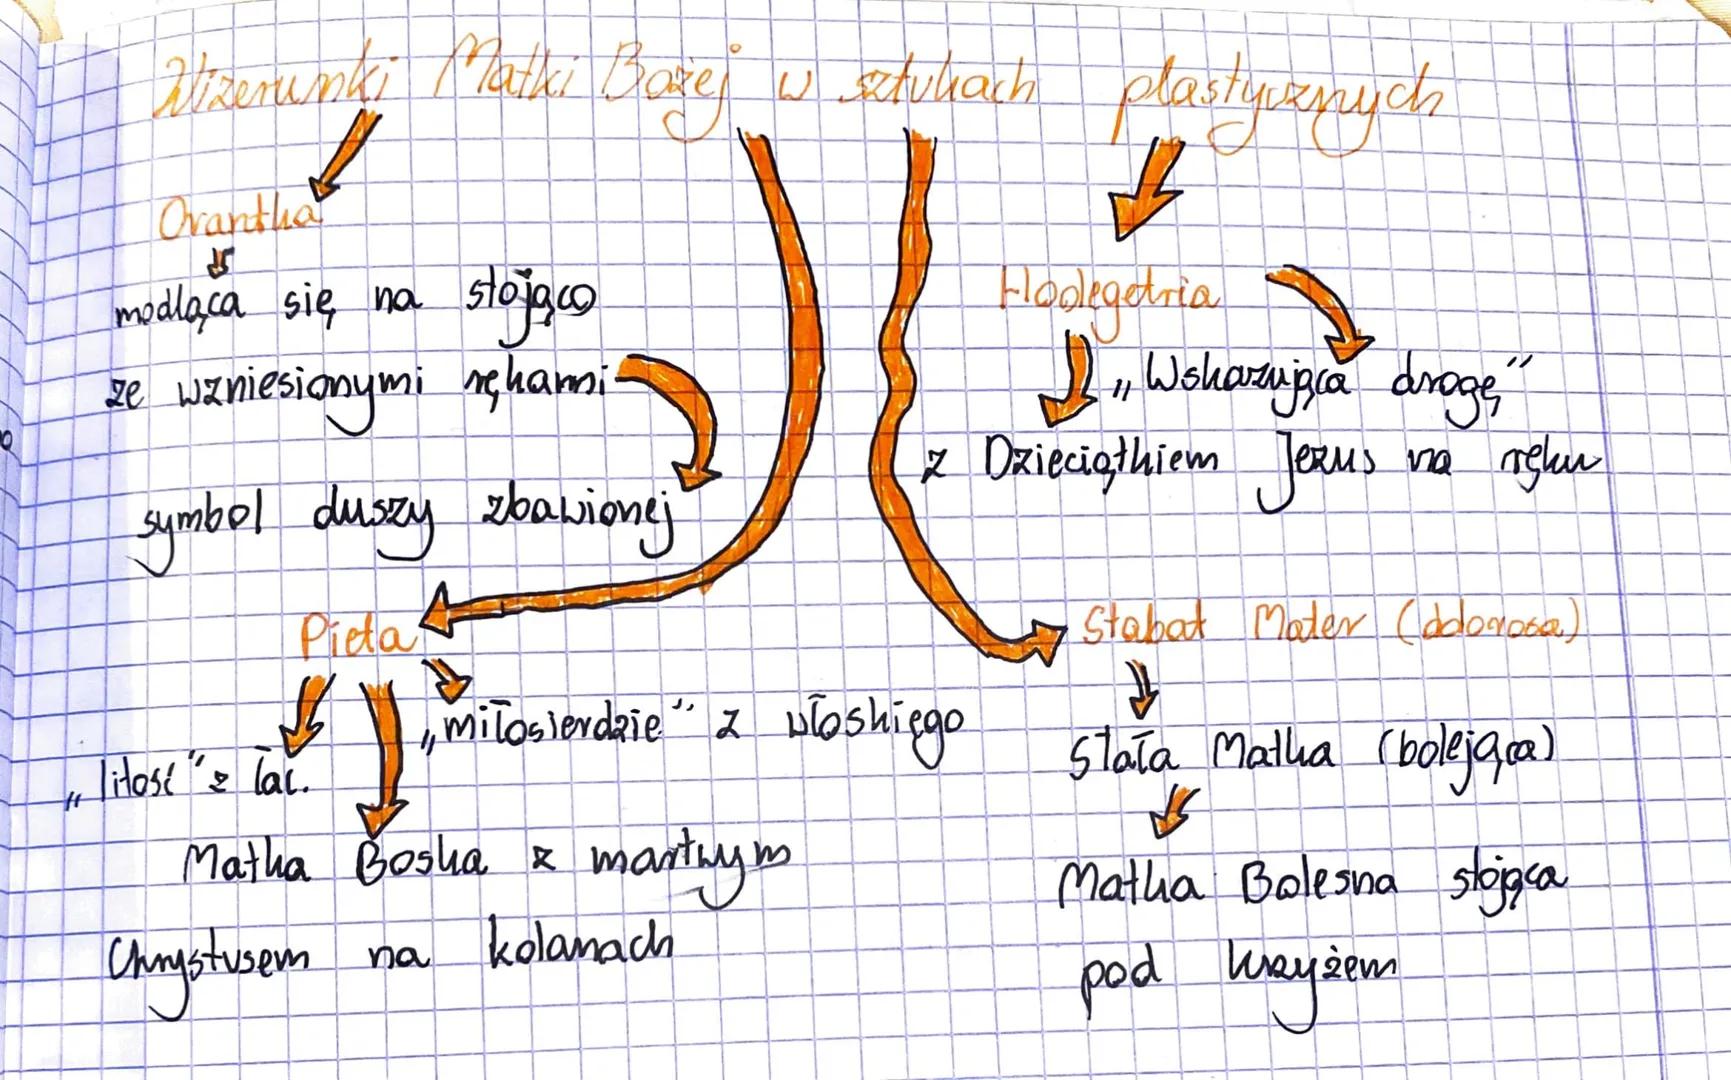 Wizerunki Matki Bożej w sztukach plastycznych
Orantka
modląca się na stojąco
ze wzniesionymi rękami
symbol duszy zbawionej
Hodegetria
„Wskazująca drogę”
z Dzieciątkiem Jezus na ręku
Pieta
„miłosierdzie” z włoskiego
„litość” z łac.
Matka Boska z martwym
Chrystusem na kolanach
Stabat Mater (dolorosa)
Stała Matka (bolejąca)
Matka Bolesna stojąca
pod krzyżem